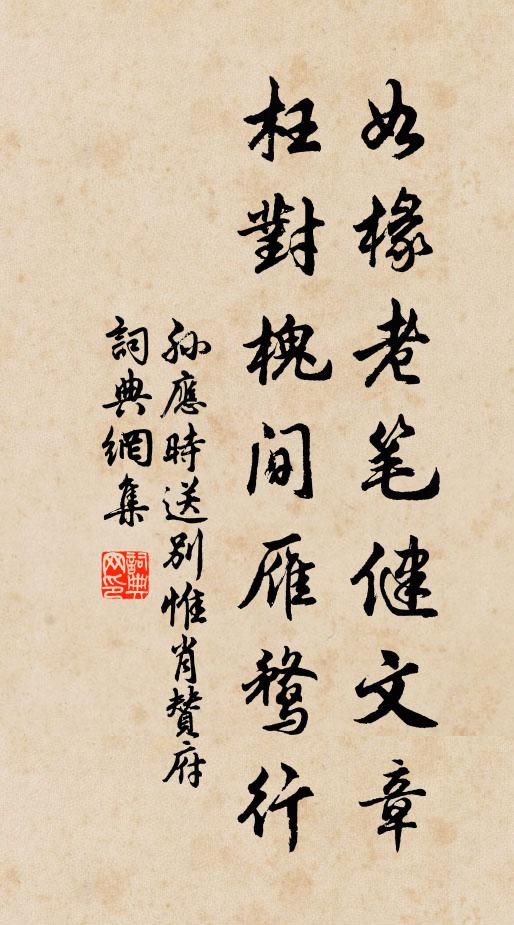 如椽老笔健文章
枉對槐間雁鶩行
孫應時送别惟肖贊府
詞典網集
詞典网印